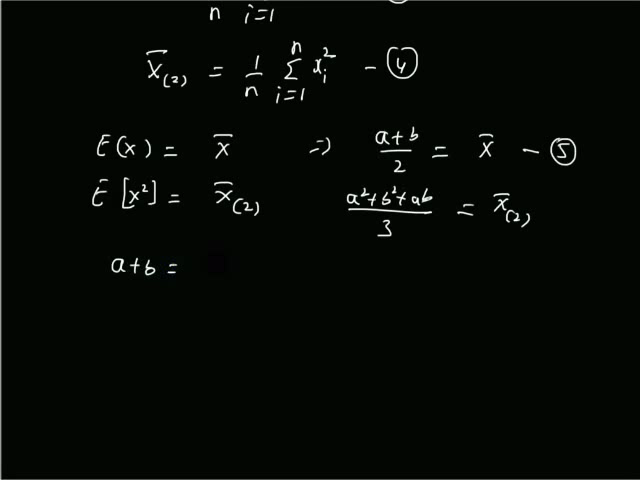 n i=1
X̄(2) = 1/n Σ(i=1 to n) xᵢ² - ④
E(x) = x̄ => (a+b)/2 = x̄ - ⑤
E[x²] = x̄(2) (a²+b²+ab)/3 = x̄(2)
a+b =